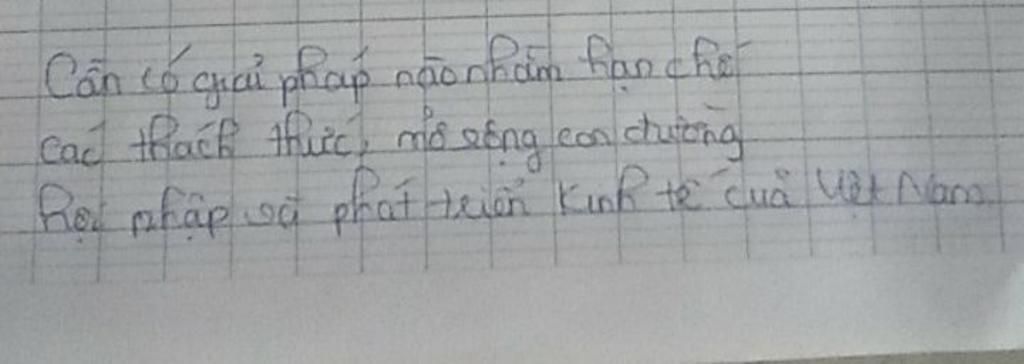 Cần có giải pháp nào nhằm hạn chế
các thách thức, mở rộng con đường
Hội nhập và phát triển kinh tế của Việt Nam